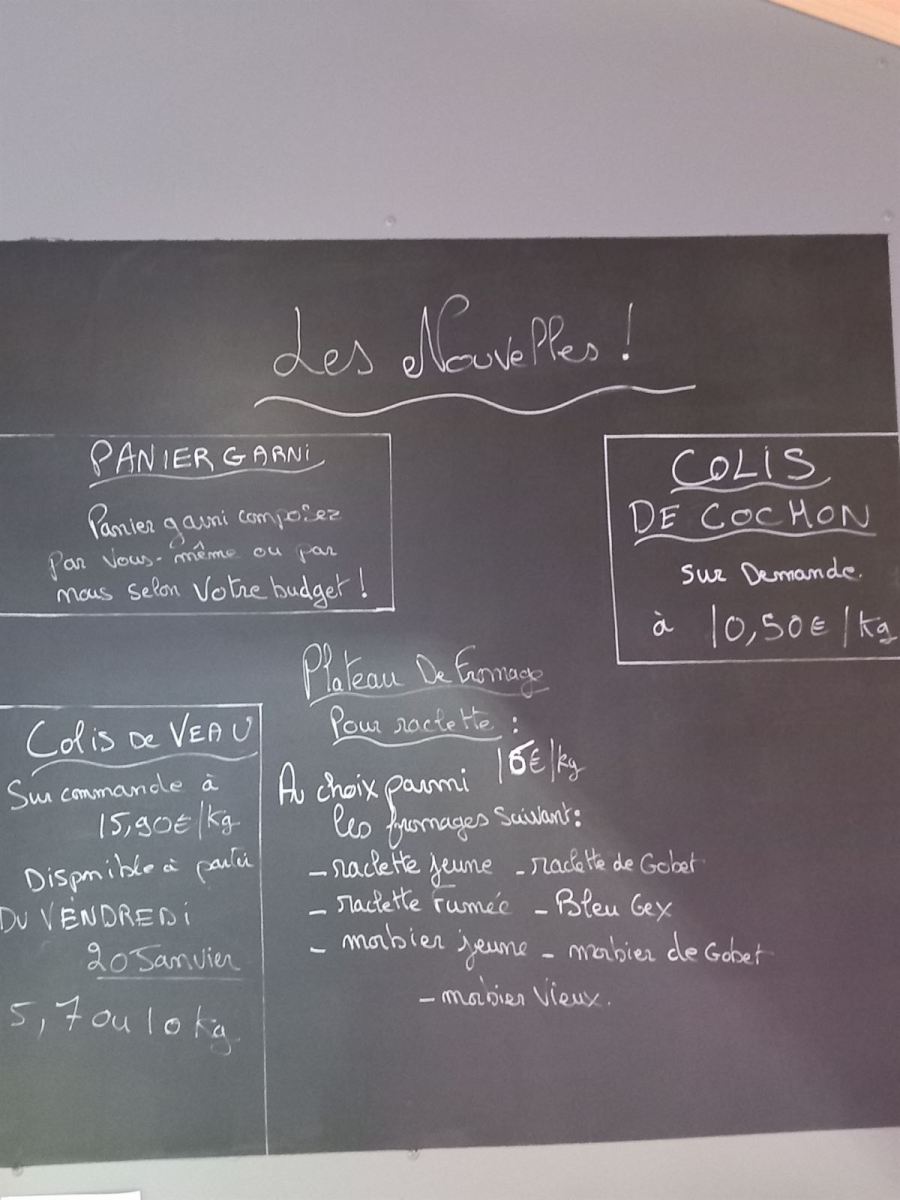 Les Nouvelles !
PANIER GARNi
Panier garni composez
par Vous-même ou par
nous selon Votre budget !
COLiS
DE COCHON
sur Demande.
à 10,50€/kg
Colis De VEAU
Sur commande à
15,90€/kg
Disponible à partir
DU VENDREDi
20 Janvier
5, 7 ou 10 kg
Plateau De Fromage
Pour raclette :
16€/kg
Au choix parmi
les fromages Suivant:
- raclette jeune - raclette de Gobet
- raclette Fumée - Bleu Gex
- morbier jeune - morbier de Gobet
- morbier Vieux.